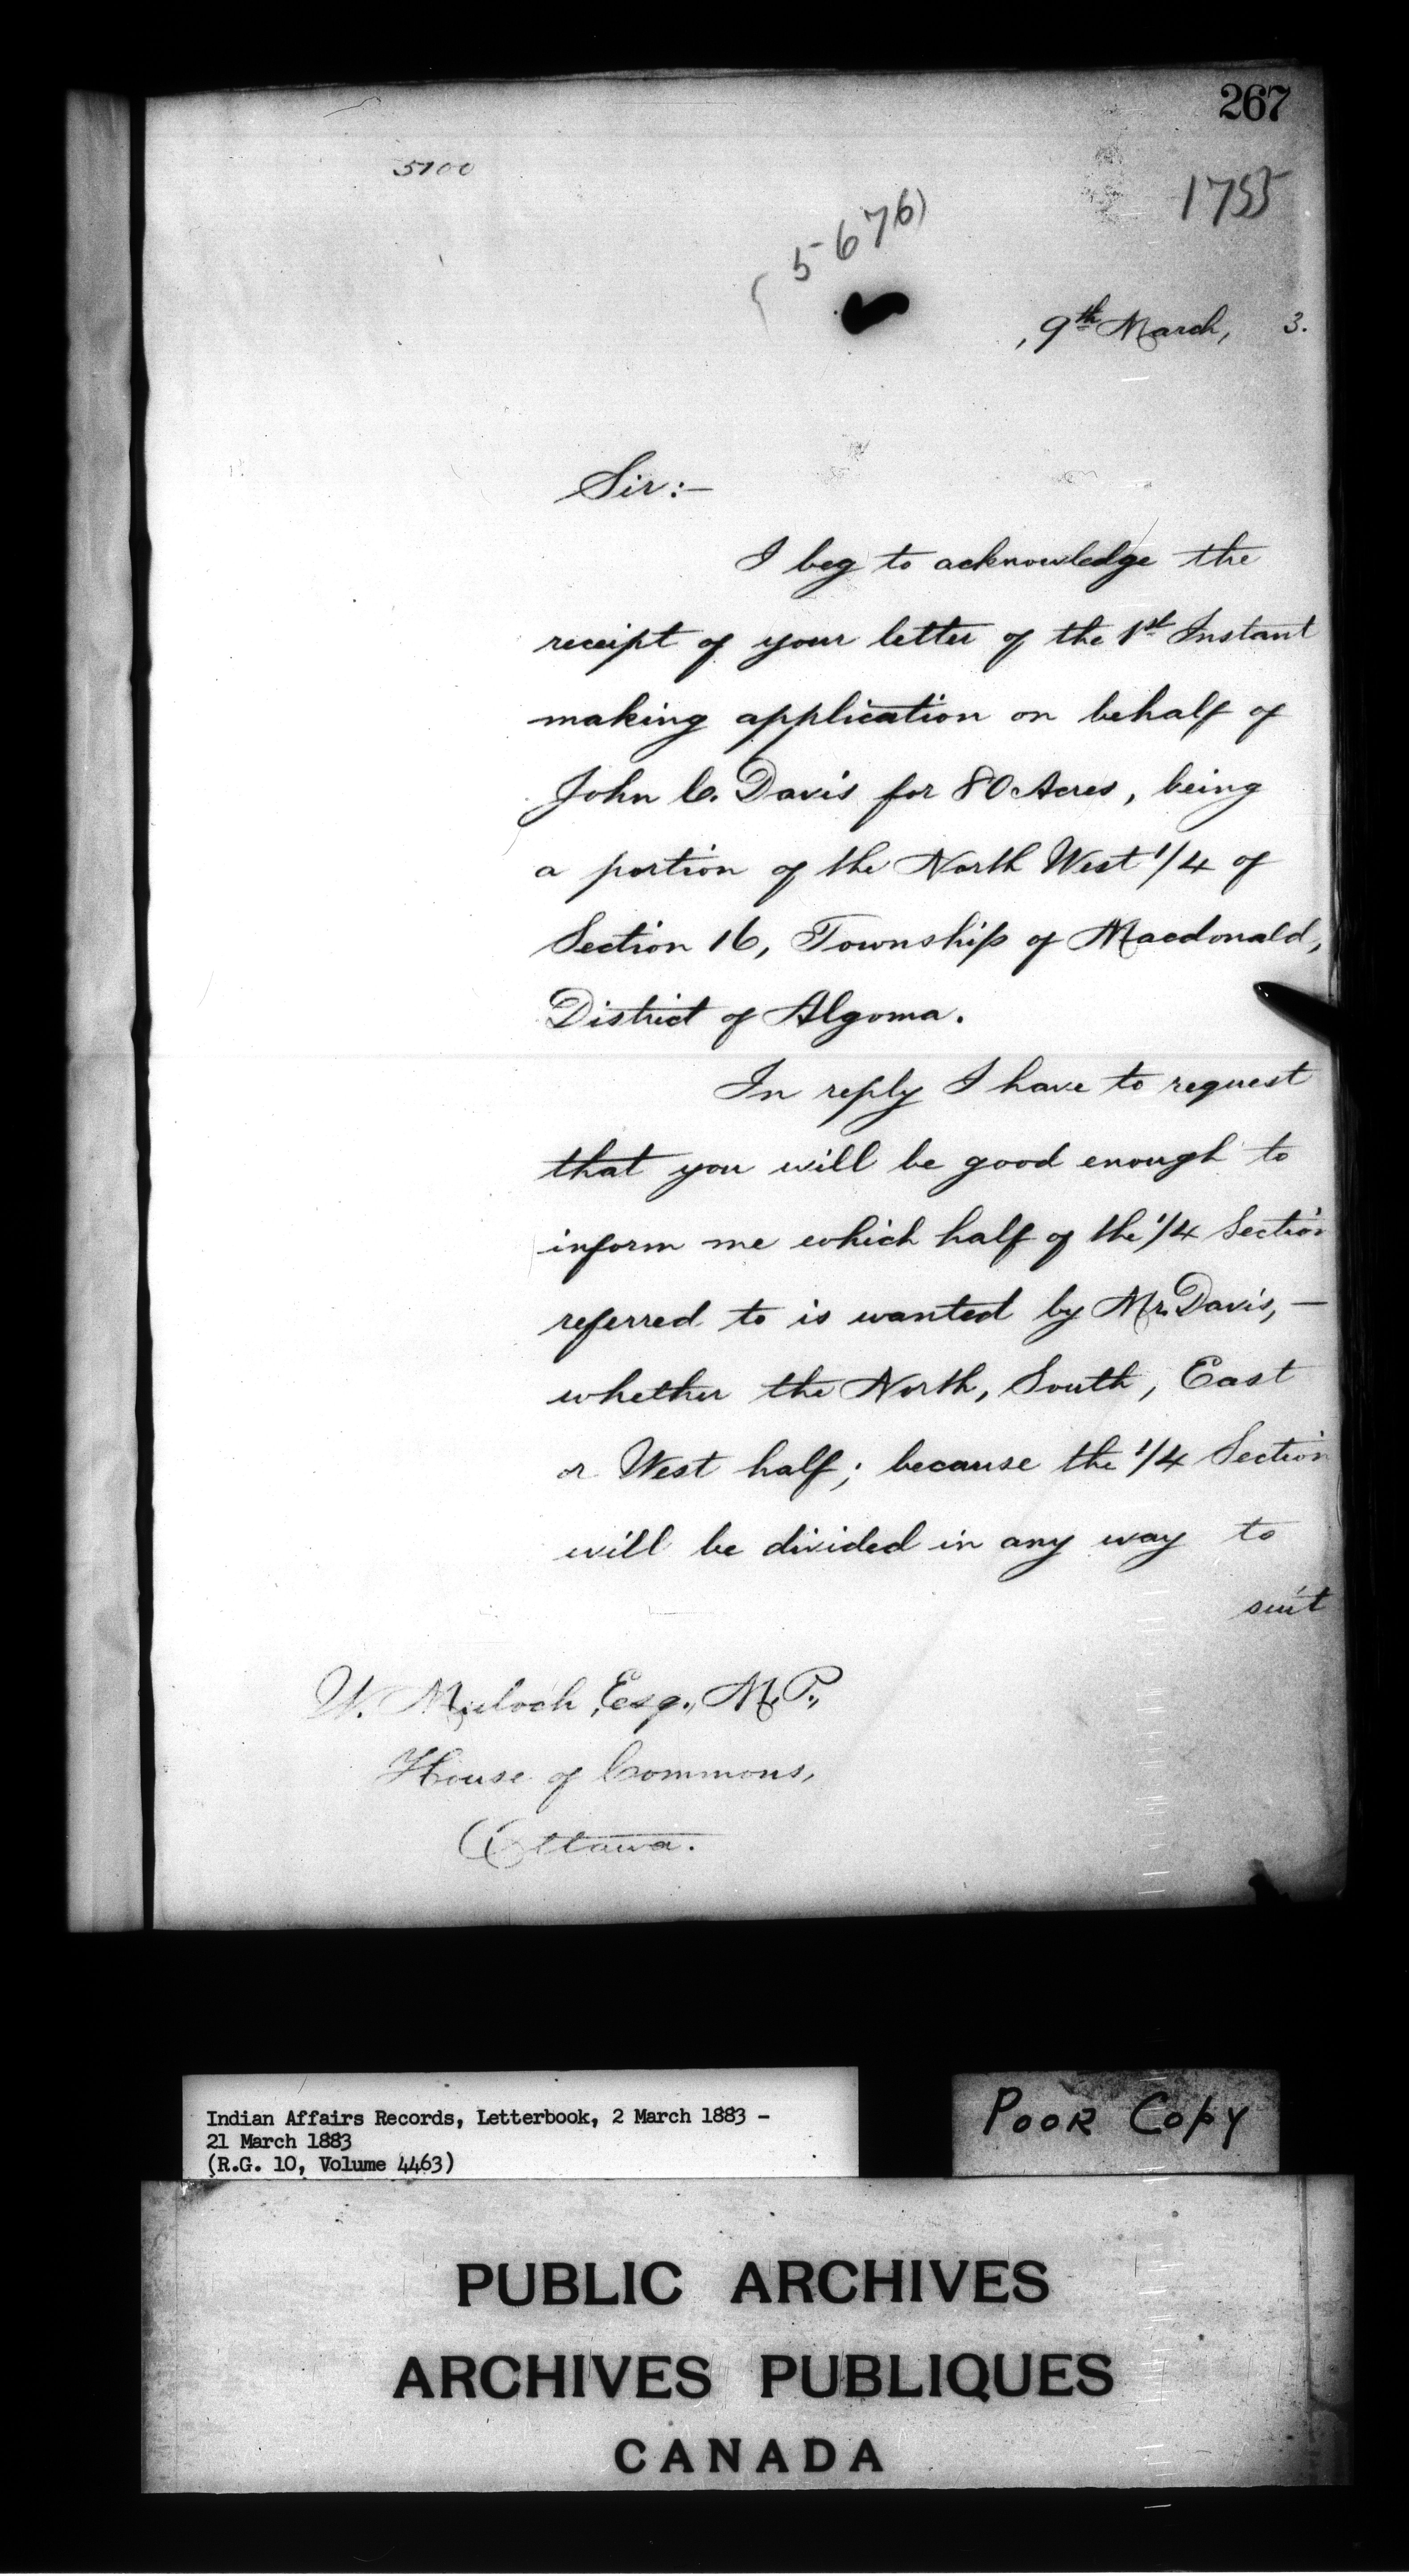 267
5700
1755
(5676)
, 9th March, 3.
Sir:—
I beg to acknowledge the
receipt of your letter of the 1st Instant
making application on behalf of
John C. Davis for 80 Acres, being
a portion of the North West 1/4 of
Section 16, Township of Macdonald,
District of Algoma.
In reply I have to request
that you will be good enough to
inform me which half of the 1/4 Section
referred to is wanted by Mr. Davis, —
whether the North, South, East
or West half; because the 1/4 Section
will be divided in any way to
suit
W. Mulock, Esq., M.P.,
House of Commons,
Ottawa.
Indian Affairs Records, Letterbook, 2 March 1883 -
21 March 1883
(R.G. 10, Volume 4463)
POOR COPY
PUBLIC ARCHIVES
ARCHIVES PUBLIQUES
CANADA